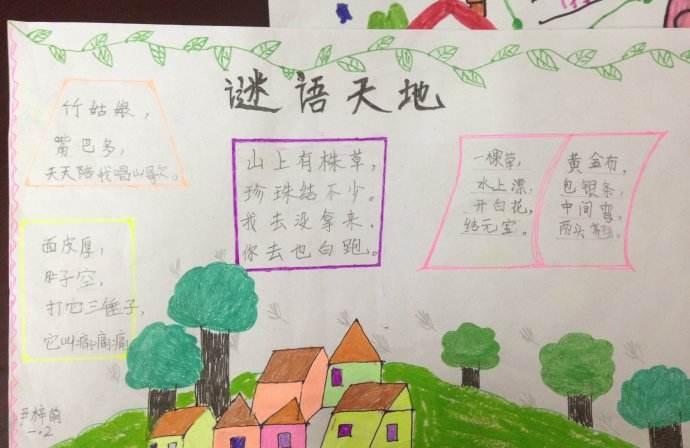 谜语天地
竹姑娘，
嘴巴多，
天天陪我唱山歌。
面皮厚，
肚子空，
打它三锤子，
它叫痛痛痛
山上有株草，
珍珠结不少。
我去没拿来，
你去也白跑。
一棵草，
水上漂，
开白花，
结元宝。
黄金布，
包银条，
中间弯，
两头
一.2